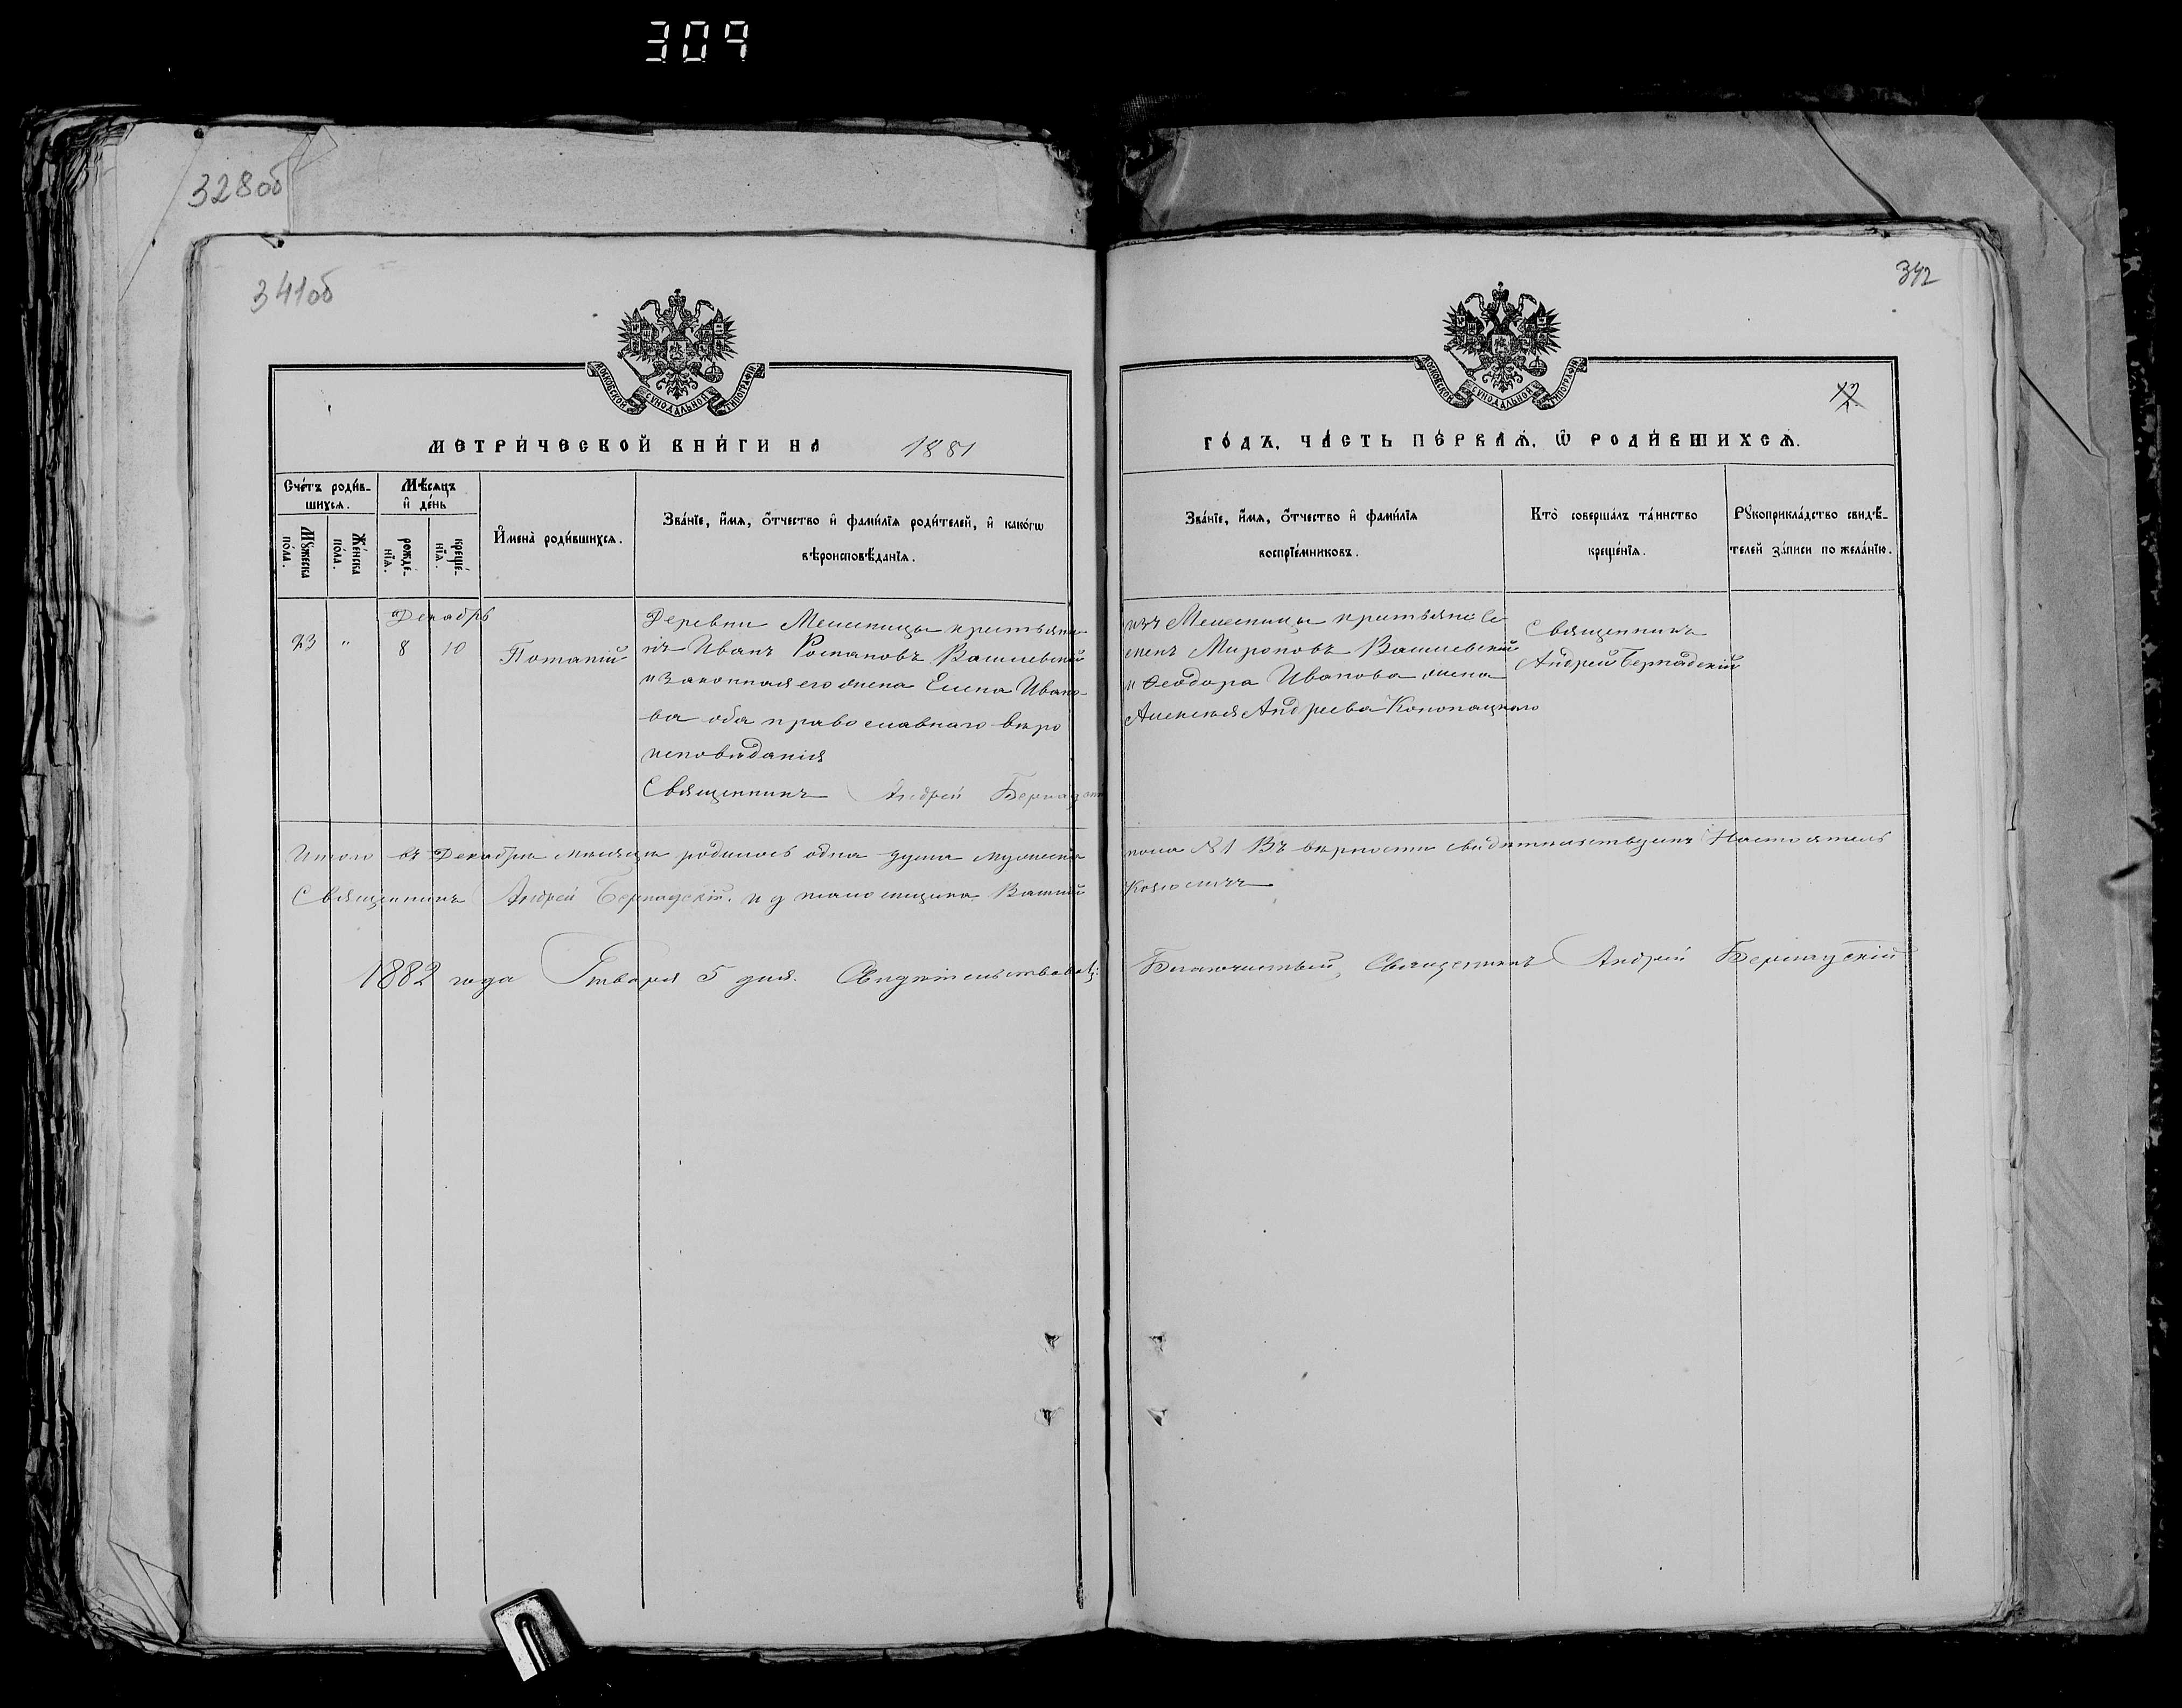 309
328об
341об
342
МОСКОВСКОЙ СѴНОДАЛЬНОЙ ТИПОГРАФІИ
МОСКОВСКОЙ СѴНОДАЛЬНОЙ ТИПОГРАФІИ
МЕТРИ́ЧЕСКОЙ КНИ́ГИ НА 1881
ГО́ДЪ, ЧА́СТЬ ПЕ́РВАѦ, Ѿ РОДИ́ВШИХСѦ.
Сче́тъ роди́в-
шихсѧ.
Мꙋ́жеска
по́ла.
Же́нска
по́ла.
Мѣ́сѧцъ
и҆ де́нь
рожде́-
нїѧ.
креще́-
нїѧ.
И҆мена̀ роди́вшихсѧ.
Зва́нїе, и҆́мѧ, ѻ҆́тчество и҆ фамилїѧ роди́телей, и҆ како́гѡ
вѣроисповѣ́данїѧ.
Зва́нїе, и҆́мѧ, ѻ҆́тчество и҆ фами́лїѧ
воспрїе́мниковъ.
Кто̀ соверша́лъ та́инство
креще́нїѧ.
Рꙋкоприкла́дство свидѣ́-
телей за́писи по жела́нїю.
Декабрь
23 " 8 10 Потапій
Деревни крестьяни-
нъ Иванъ Романовъ Василевскій
и законная его жена Елена Ивано-
ва оба православнаго вѣро
исповѣданія
Священникъ Андрей Бернадскій
изъ крестьяне Се
менъ Мироновъ Василевскій
и Ѳеодора Иванова жена
Алексѣя Андреева Конопацкаго
Священникъ
Андрей Бернадскій
Итого въ Декабрѣ мѣсяцѣ родилось одна душа мужеска
пола №1 Въ вѣрности свидѣтельствуемъ Настоятель
Священникъ Андрей Бернадскій. и д псаломщика Василій
1882 года Января 5 дня. Свидѣтельствовалъ:
Благочинный, Священникъ Андрей Бернадскій